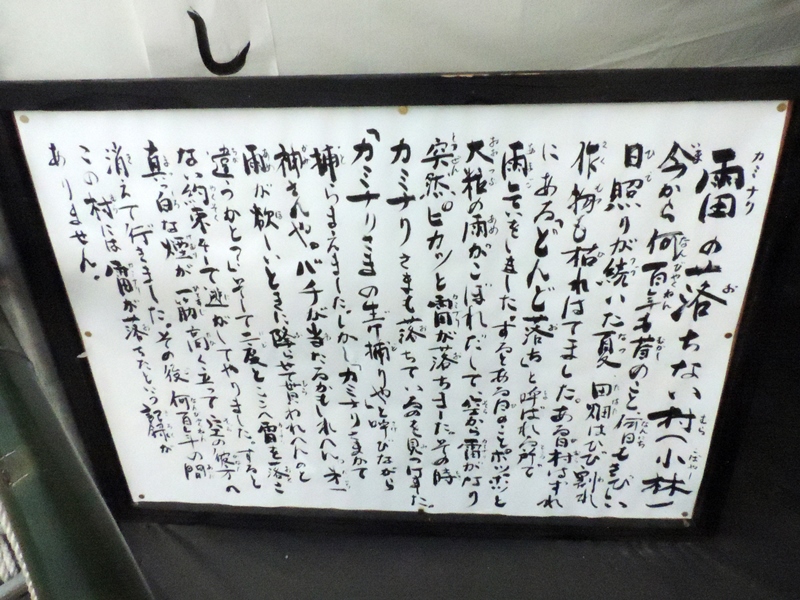 し
雷の落ちない村(小林)
今から何百年も昔のこと何日もきびしい
日照りが続いた夏 田畑はひび割れ
作物も枯れはてました。ある日村はずれ
にある「どんど落ち」と呼ばれる所で
雨乞いをしました。するとある日のことポツポツと
大粒の雨がこぼれだして空から雷がなり
突然。ピカッと雷が落ちました。その時
カミナリさまも落ちているのを見つけました。
「カミナリさまの生け捕りや」と呼びながら
捕らまえました。しかし「カミナリさまかて
神さんや。バチが当たるかもしれへん。才一
雨が欲しいときに降らせて貰われへんのと
違うかと?」そして二度とここへ雷を落さ
ない約束をして逃がしてやりました。すると
真っ白な煙が一筋高く立って空の彼方へ
消えて行きました。その後何百年の間
この村には雷が落ちたという記録が
ありません。